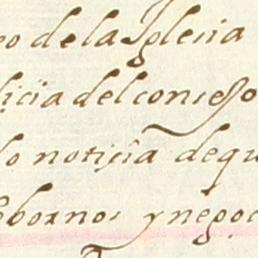 o de la Iglesia
licia del consejo
o noticia de qu
obornos y negoc